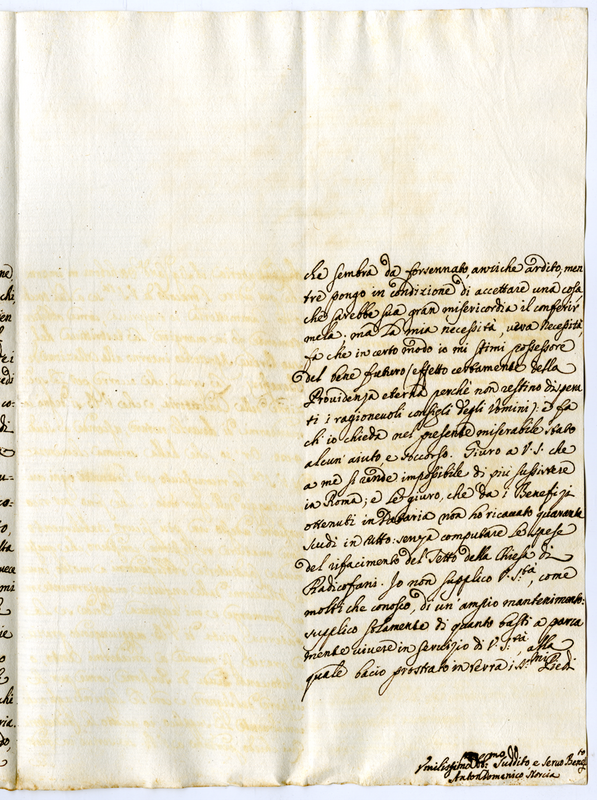 che sembra da forsennato, anziche ardito, men
tre pongo in condizione di accettare una cosa
che sarebbe sua gran misericordia il conferir
mela. ma la mia necessità, vera Necessità,
fà che in certo modo io mi stimi possessore
del bene futuro /effetto certamente della
Providenza eterna perchè non restino dispera
ti i ragionevoli consigli degli Uomini/: e fa
ch'io chieda nel presente miserabile stato
alcun' aiuto e soccorso. Giuro a V.S. che
a me si rende impossibile di più sussistere
in Roma; e Le giuro, che da i Benefizi
ottenuti in Dataria non ho ricavato quaranta
scudi in tutto: senza computare Le spese
del rifacimento del Tetto della Chiesa di
Radicofani. Io non supplico V.S.tà, come
molti che conosco, di un' ampio mantenimento:
supplico solamente di quanto basti a parca
mente vivere in servizio di V.S.tà, alla
quale bacio prostrato in terra i S.mi Piedi
Umilissimo Obb.mo Suddito e Servo
AntonDomenico Norcia
ne
chi
co:
di
u-
co:
to,
mi
o
chi
ria.
do,